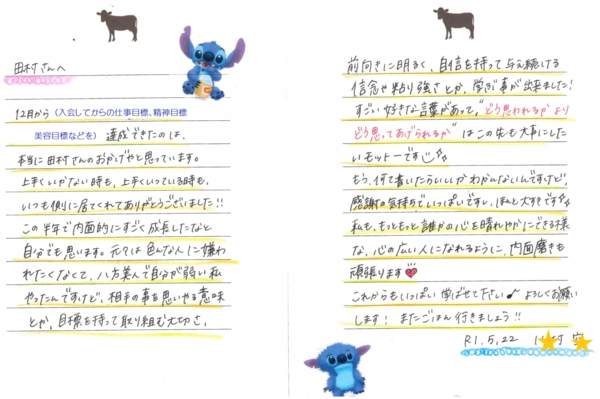 田村さんへ
12月から（入会してからの仕事目標、精神目標
美容目標などを）達成できたのは、
本当に田村さんのおかげやと思っています。
上手くいかない時も、上手くいっている時も、
いつも側に居てくれてありがとうございました!!
この半年で内面的にすごく成長したなと
自分でも思います。元々は色んな人に嫌わ
れたくなくて、八方美人で自分が弱い私
やったんですけど、相手の事を思いやる意味
とか、目標を持って取り組む大切さ、
前向きに明るく、自信を持って与え続ける
信念や粘り強さとか、学ぶ事が出来ました!
すごい好きな言葉があって、"どう思われるかより
どう思ってあげられるか"はこの先も大事にした
いモットーです
もう、何て書いたらいいかわかんないんですけど、
感謝の気持ちでいっぱいです、ほんと大すきです
私も、もっともっと誰かの心を晴れやかにできる様
な、心の広い人になれるように、内面磨きも
頑張ります
これからもいっぱい学ばせて下さい♪ よろしくお願い
します! またごはん行きましょう!!
R1.5.22